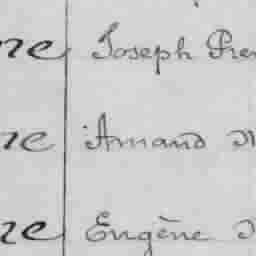 ne Joseph Pre
ne Amand N
ne Eugène